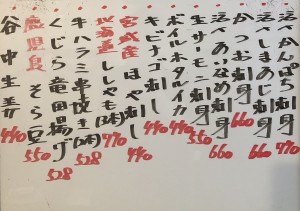 活〆かんぱち刺身 770
活〆しまあじ刺身 660
かつお刺身 660
活〆あいなめ刺身 660
生サーモン刺身 550
ボイルホタルイカ 440
キビナゴ刺 440
宮城産 ほや刺し 440
北海道 ししゃも(3本) 770
牛ハラミ串焼き(2本) 528
くじら竜田揚げ 528
鹿児島 そら豆 550
谷中生姜 440